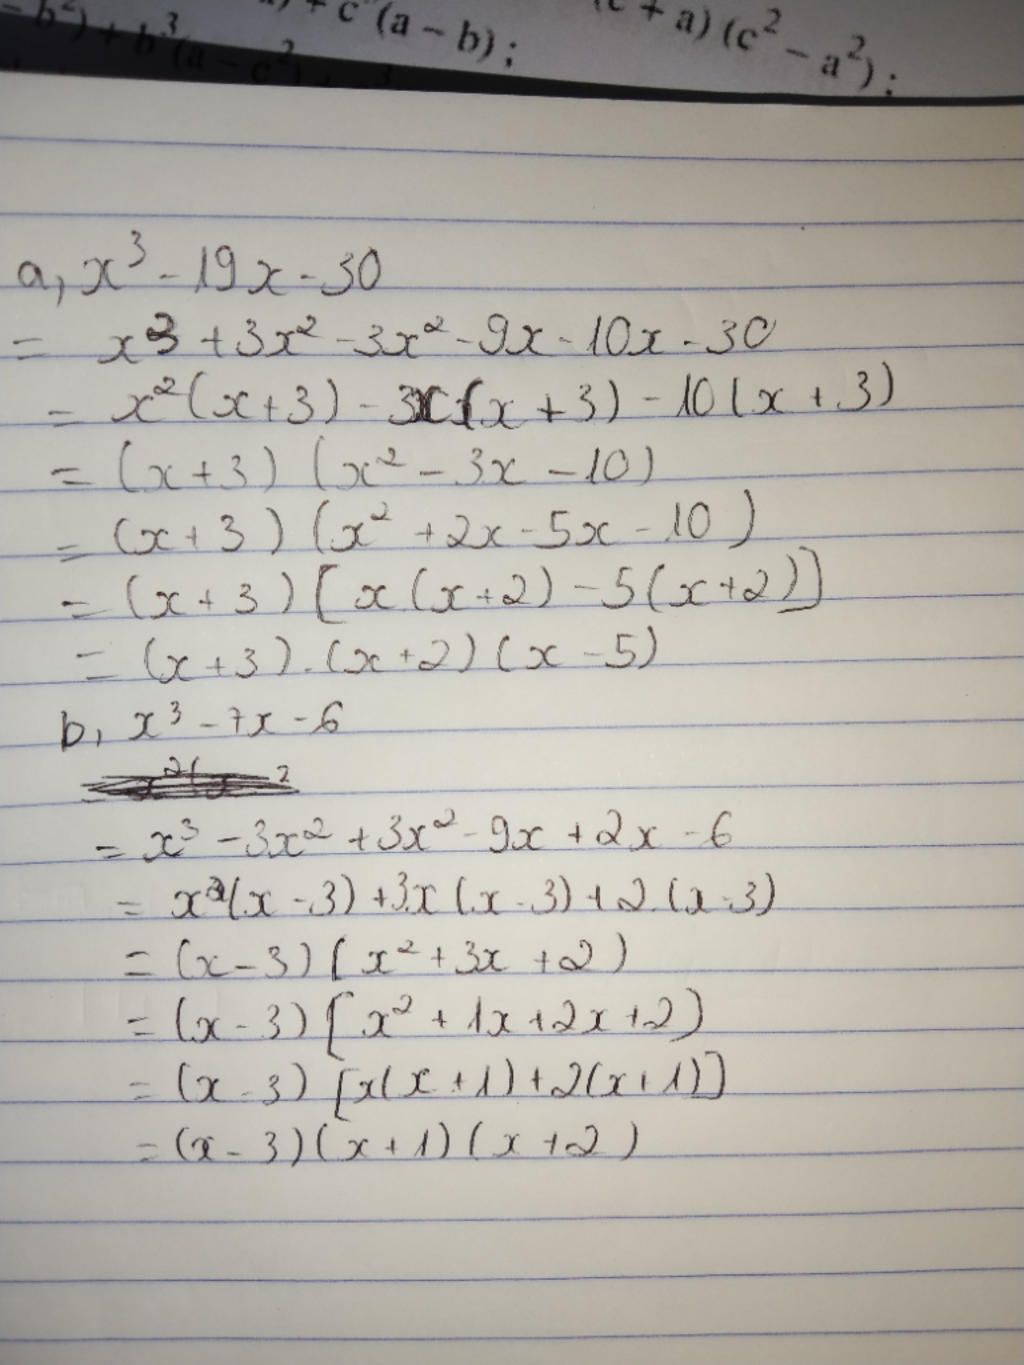 + c³(a − b);
(c + a)(c² − a²);
− b²) + b³(a − c²) +
a, x³ - 19x - 30
= x³ + 3x² - 3x² - 9x - 10x - 30
= x²(x + 3) - 3x(x + 3) - 10(x + 3)
= (x + 3) (x² - 3x - 10)
= (x + 3) (x² + 2x - 5x - 10)
= (x + 3) [x(x + 2) - 5(x + 2)]
= (x + 3).(x + 2)(x - 5)
b, x³ - 7x - 6
= x³ - 3x² + 3x² - 9x + 2x - 6
= x²(x - 3) + 3x(x - 3) + 2.(x - 3)
= (x - 3)(x² + 3x + 2)
= (x - 3)[x² + 1x + 2x + 2)
= (x - 3) [x(x + 1) + 2(x + 1)]
= (x - 3)(x + 1)(x + 2)